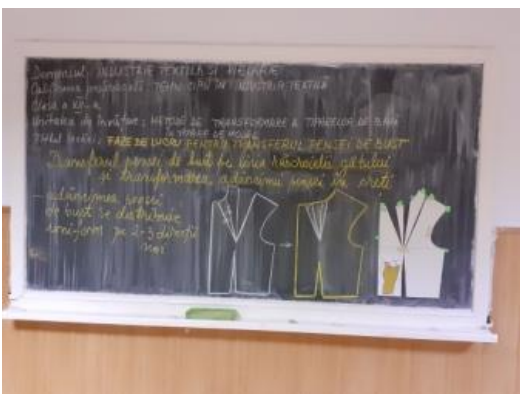 Domeniul: INDUSTRIE TEXTILĂ ȘI PIELĂRIE
Calificarea profesională: TEHNICIAN ÎN INDUSTRIA TEXTILĂ
Clasa a XII-a
Unitatea de învățare: METODE DE TRANSFORMARE A TIPARELOR DE BAZĂ
ÎN TIPARE DE MODEL
Titlul lecției: FAZE DE LUCRU PENTRU TRANSFERUL PENSEI DE BUST
Transferul pensei de bust pe linia răscroielii gâtului
și transformarea adâncimii pensei în creți
- adâncimea pensei
de bust se distribuie
uniform pe 2-3 direcții
noi